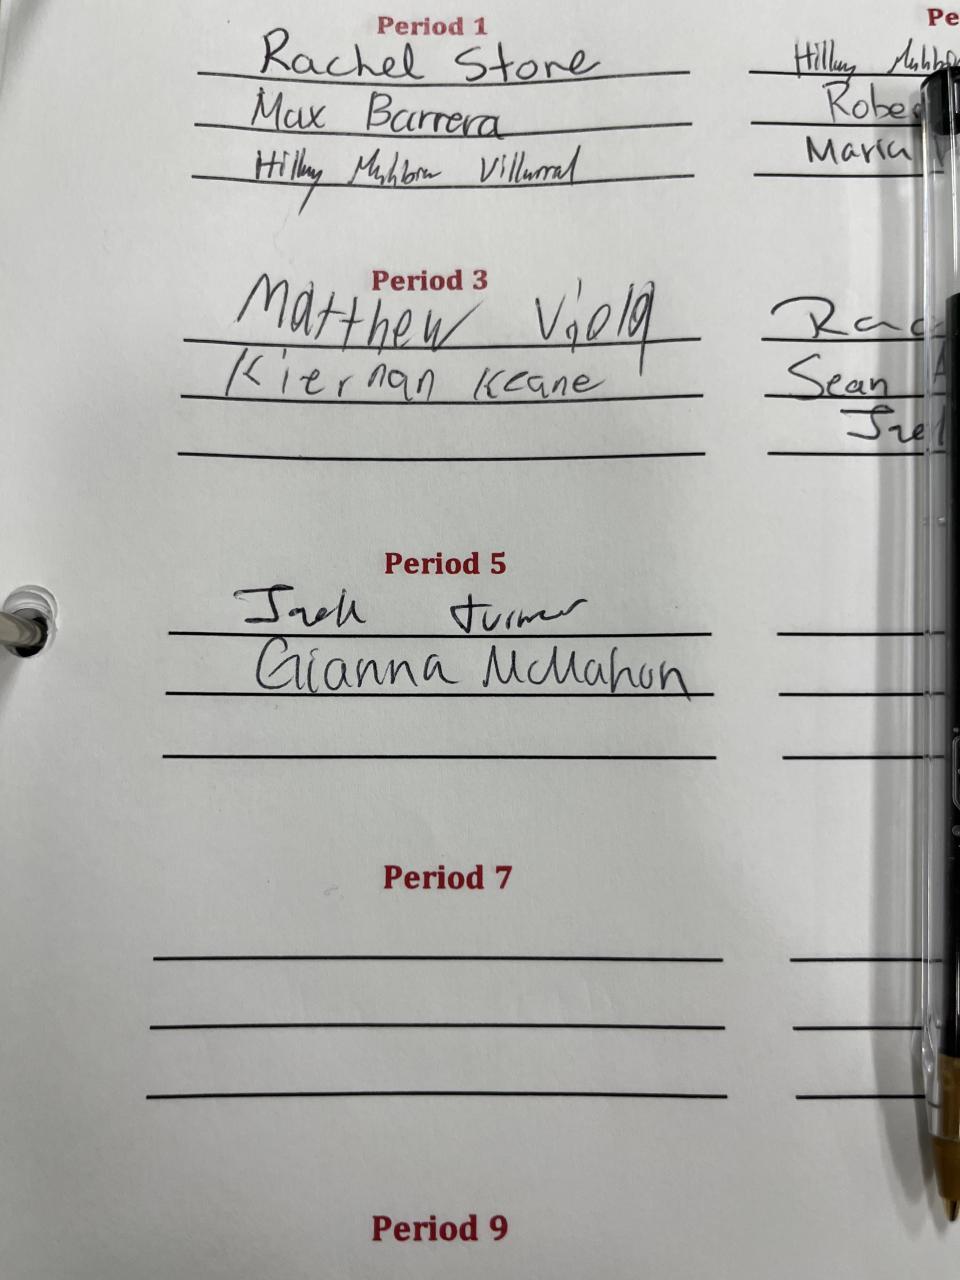 Period 1
Rachel Stone
Max Barrera
Hillary Villarreal
Period 3
Matthew Viola
Kiernan Keane
Period 5
Jack Turner
Gianna McMahon
Period 7
Period 9
Pe
Hillary
Maria
Sean